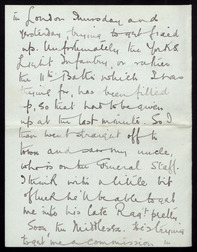 in London Thursday and
yesterday, trying to get fixed
up. Unfortunately the York &
Light Infantry, or rather
the 11th Batt. which I was
trying for, has been filled
up, so that had to be given
up at the last minute. So I
then went straight off to
town and saw my uncle,
who is on the General Staff.
I think with a little bit
of luck he'll be able to get
me into his late Regt. pretty
soon, the Middlesex. He's trying
to get me a commission in